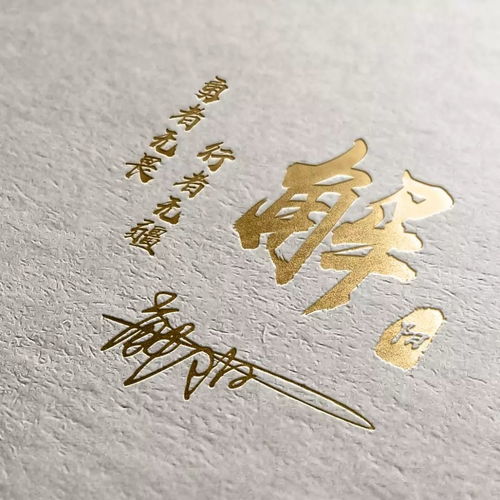 勇者无畏
行者无疆
解